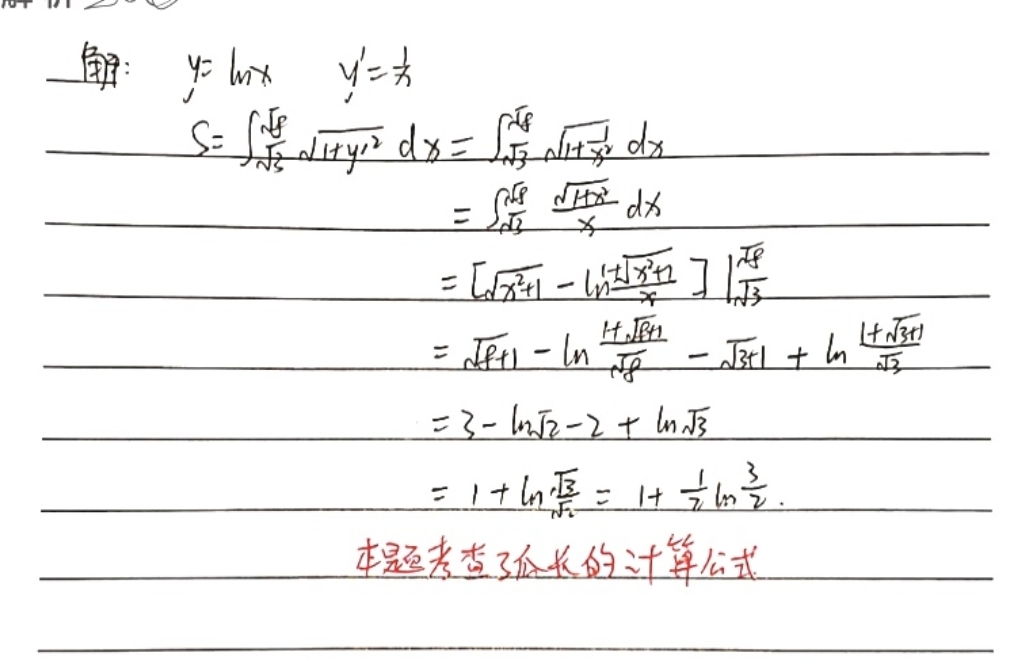 解: y=lnx y'=1/x
S=∫_{√3}^{√8} √(1+y'²) dx = ∫_{√3}^{√8} √(1+1/x²) dx
= ∫_{√3}^{√8} √(1+x²)/x dx
= [√(x²+1) - ln (1+√(x²+1))/x ] |_{√3}^{√8}
= √(8+1) - ln (1+√(8+1))/√8 - √(3+1) + ln (1+√(3+1))/√3
= 3 - ln√2 - 2 + ln√3
= 1 + ln √3/√2 = 1 + 1/2 ln 3/2.
本题考查了弧长的计算公式